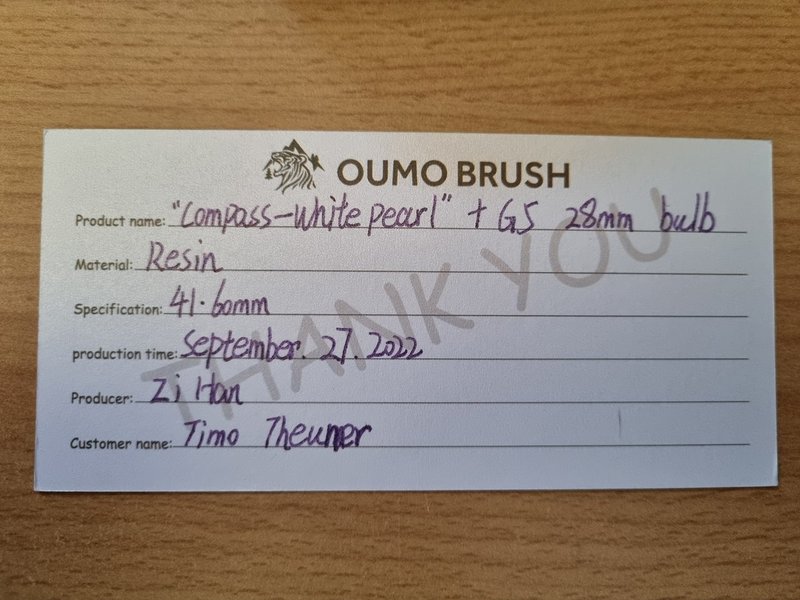 OUMO BRUSH
Product name: "Compass-White pearl" + G5 28mm bulb
Material: Resin
Specification: 41.60mm
production time: September. 27. 2022
Producer: Zi Han
Customer name: Timo Theuner
THANK YOU